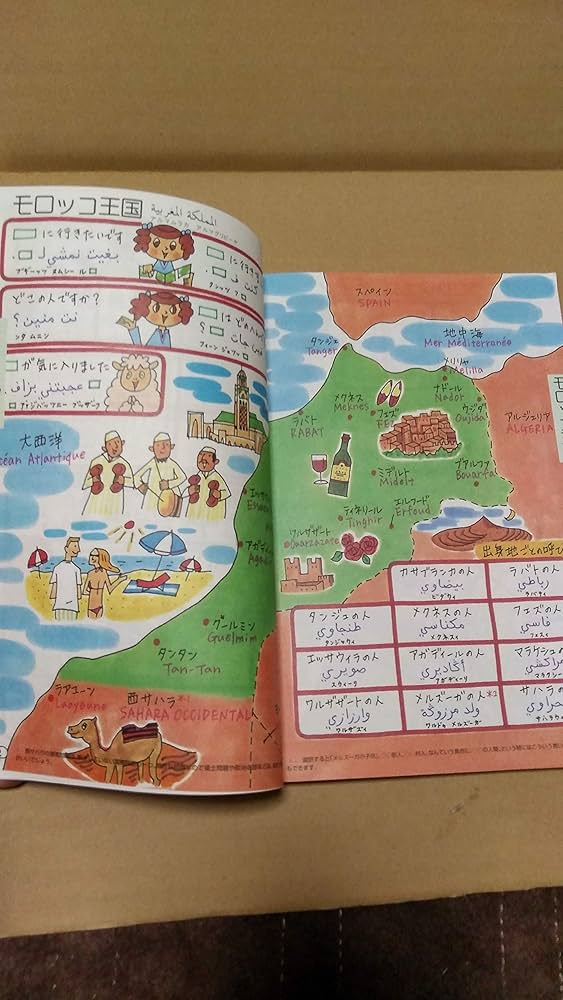 モロッコ王国
المملكة المغربية
アルマムラカ アルマグリビーヤ
に行きたいです
بغيت نمشي ل
ブギーッツ ヌムシール
に行き
كنت ف
クンッツ フ
どこの人ですか?
نت منين؟
ンタ ムニン
はどの
؟
が気に入りました
عجبتني بزاف
大西洋
céan Atlantique
グールミン
Guelmim
タンタン
Tan-Tan
ラアユーン
Laayoune
西サハラ※1
SAHARA OCCIDENTAL
スペイン
SPAIN
タンジェ
Tanger
地中海
Mer Méditerranée
メリリャ
Melilla
ナドール
Nador
メクネス
Meknes
フェズ
ウジダ
Oujida
ラバト
RABAT
アルジェリア
ALGERIA
ミデルト
Midelt
ブアルファ
Bouarfa
ティネリール
Tinghir
エルフード
Erfoud
ワルザザート
Ouarzazate
出身地ごとの呼び
カサブランカの人
بيضاوي
ビダウィ
ラバトの人
رباطي
ラバティ
タンジェの人
طنجاوي
タンジャウィ
メクネスの人
مكناسي
メクネスィ
フェズの人
فاسي
フェスィ
エッサウィラの人
صويري
スウィーリ
アガディールの人
أڭاديري
アガディーリ
マラケシュ
مراكشي
ワルザザートの人
وارزازي
ワルザーズィ
メルズーガの人※2
ولد مرزوڭة
ワルドゥ メルズーガ
サハラの
حراوي